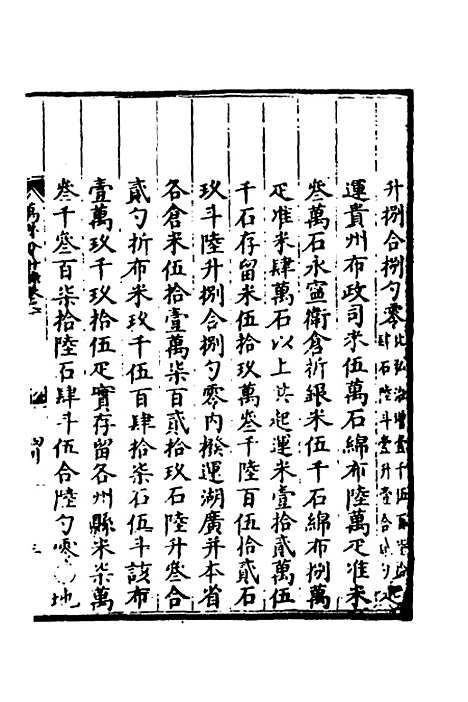 升捌合捌勺零比弘治增壹千伍百
肆石陸斗壹升壹合
運貴州布政司米伍萬石綿布陸萬疋准米
叄萬石永寧衛倉折銀米伍千石綿布捌萬
疋准米肆萬石以上共起運米壹拾貳萬伍
千石存留米伍拾玖萬叄千陸百伍拾貳石
玖斗陸升捌合捌勺零內撥運湖廣并本省
各倉米伍拾壹萬柒百貳拾玖石陸升叄合
貳勺折布米玖千伍百肆拾柒石伍斗該布
壹萬玖千玖拾伍疋實存留各州縣米柒萬
叄千叄百柒拾陸石肆斗伍合陸勺零地
萬曆會計錄卷